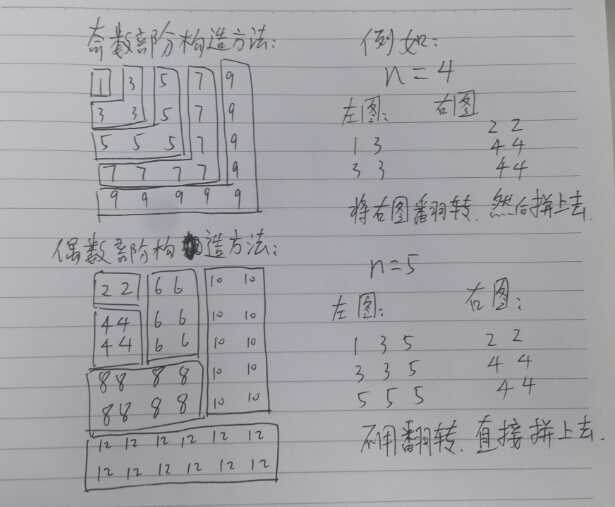 奇数部分构造方法:
1 3 5 7 9
3 3 5 7 9
5 5 5 7 9
7 7 7 7 9
9 9 9 9 9
偶数部分构造方法:
2 2 6 6 10 10
4 4 6 6 10 10
4 4 6 6 10 10
8 8 8 8 10 10
8 8 8 8 10 10
12 12 12 12 12 12
12 12 12 12 12 12
例如:
n=4
左图: 右图
1 3 2 2
3 3 4 4
4 4
将右图翻转.然后拼上去.
n=5
左图: 右图:
1 3 5 2 2
3 3 5 4 4
5 5 5 4 4
不用翻转.直接拼上去.